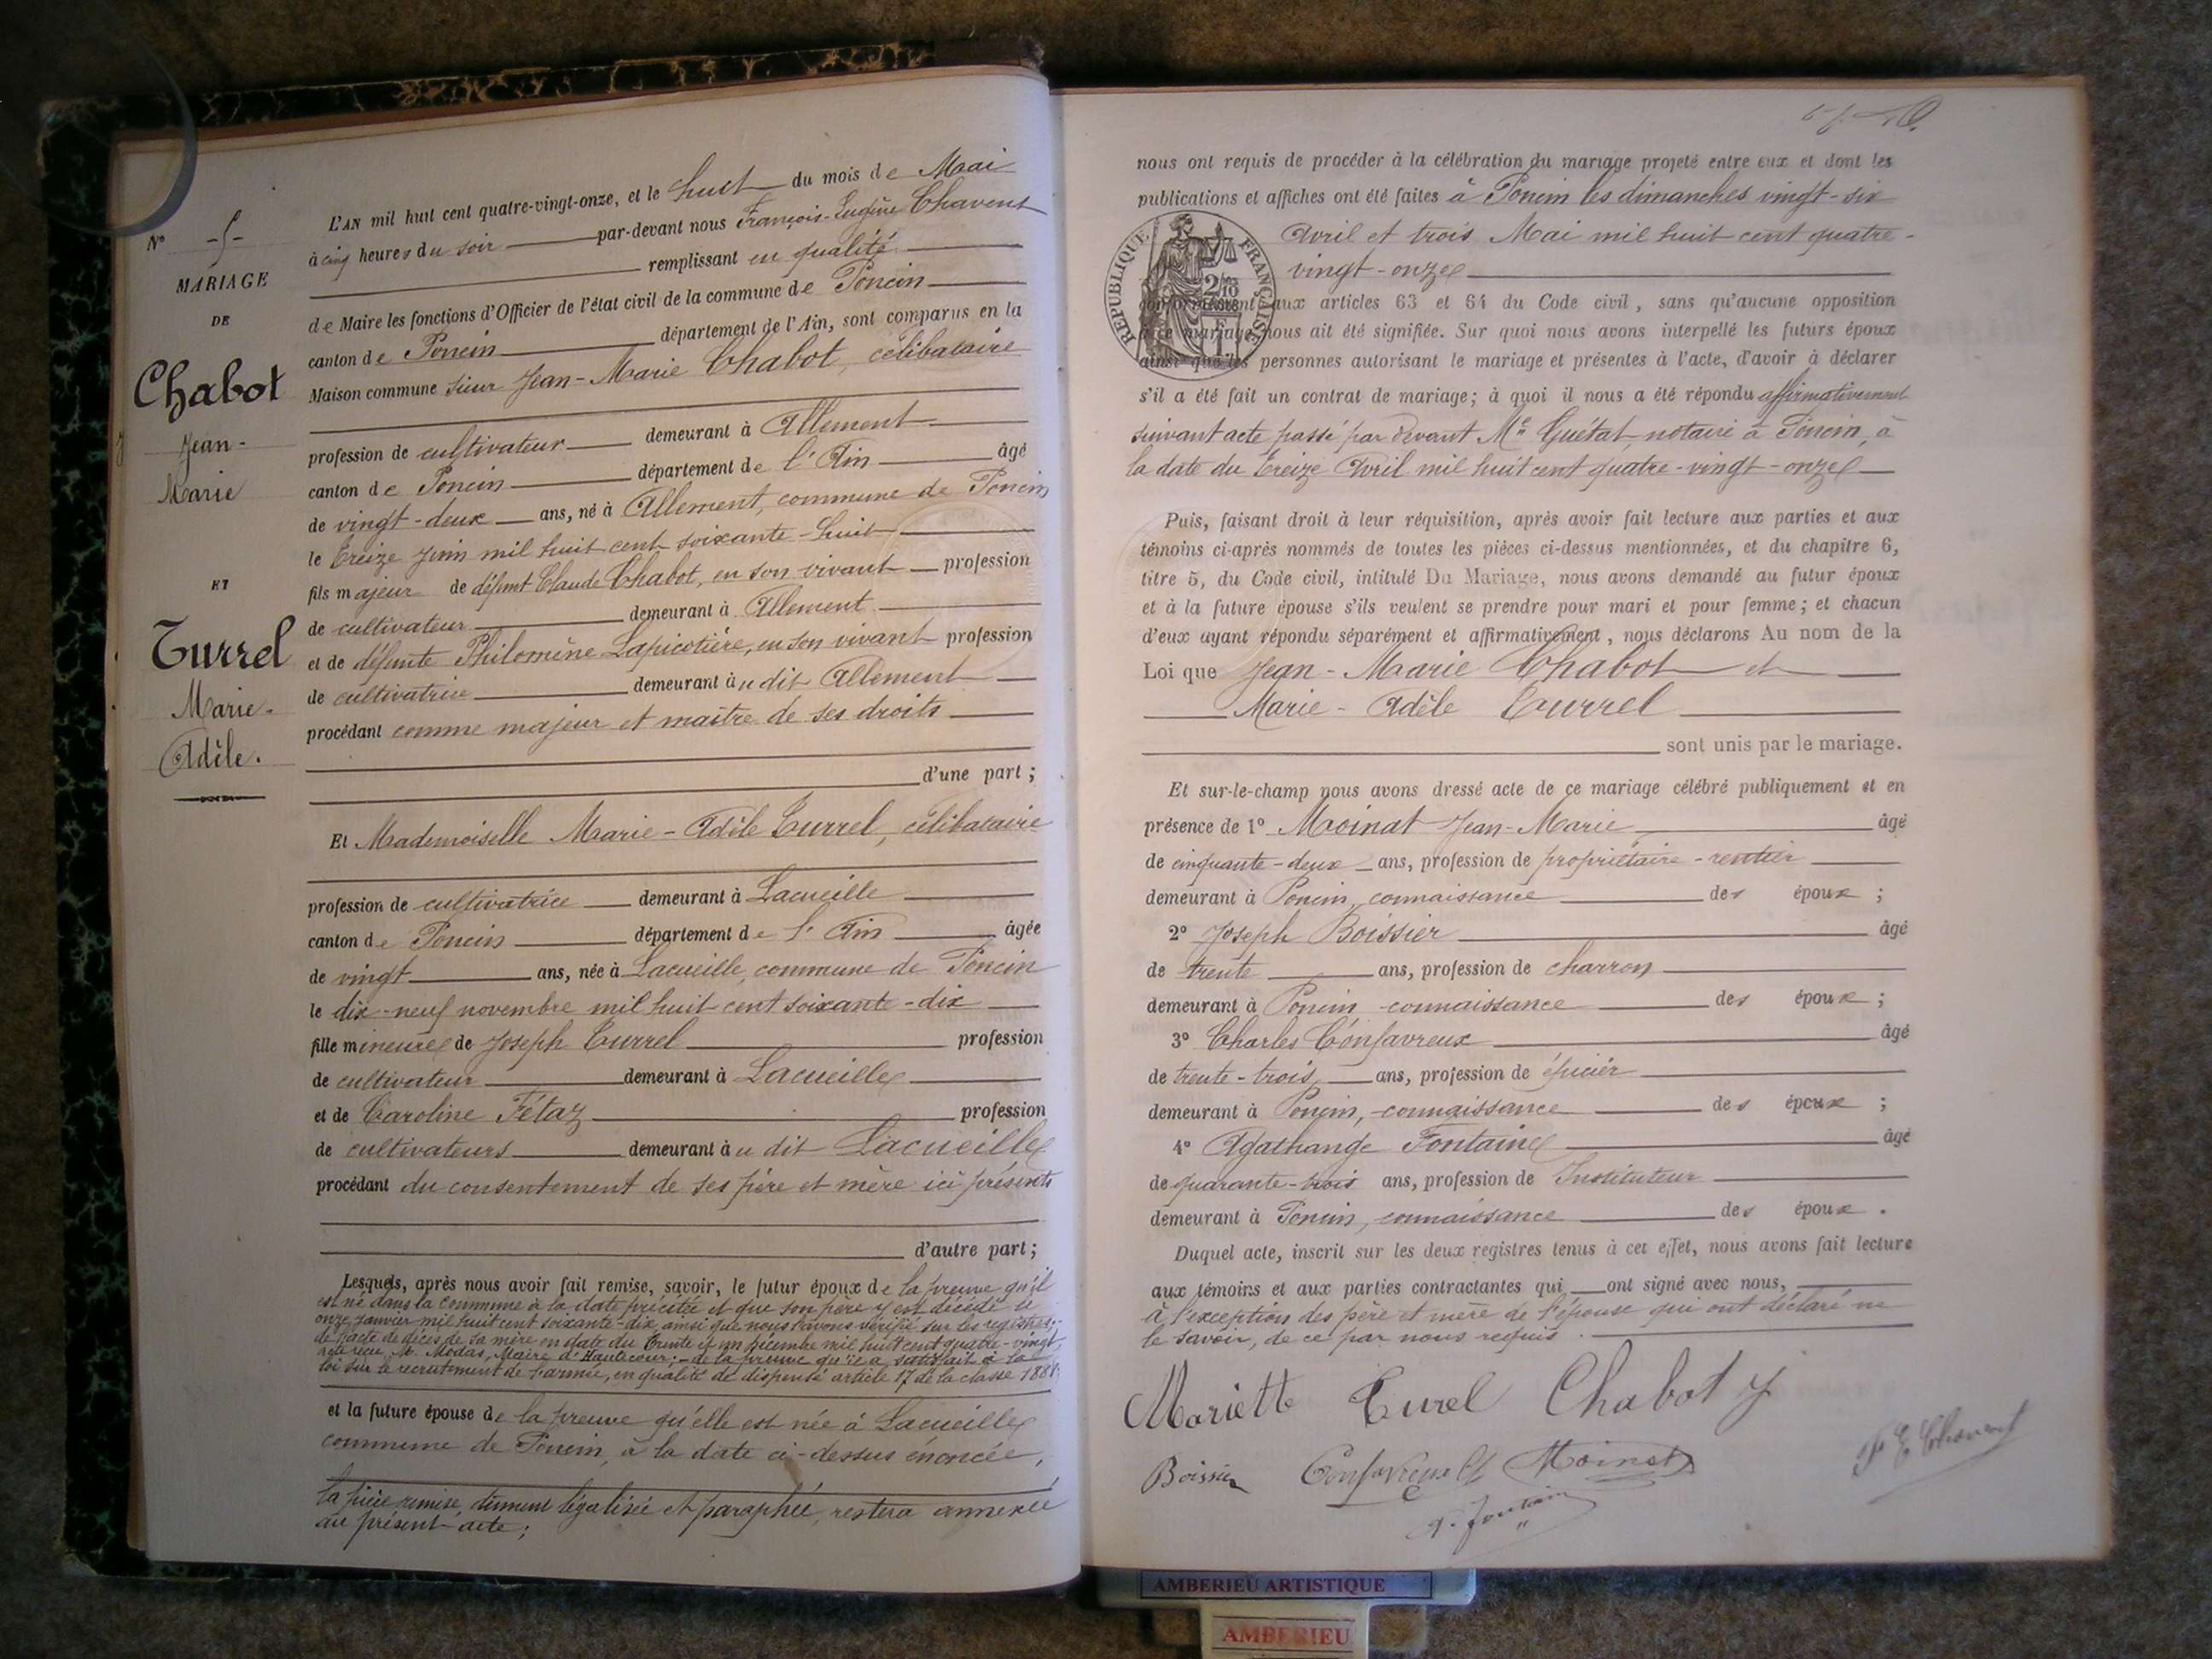 N° -5-
MARIAGE
DE
Chabot
Jean-
Marie
ET
Turrel
Marie-
Adèle.
L'AN mil huit cent quatre-vingt-onze, et le huit du mois de Mai
à cinq heures du soir par-devant nous François-Eugène Chavent
remplissant en qualité
de Maire les fonctions d'Officier de l'état civil de la commune de Poncin
canton de Poncin département de l'Ain, sont comparus en la
Maison commune sieur Jean-Marie Chabot, célibataire
profession de cultivateur demeurant à Allement
canton de Poncin département de l'Ain âgé
de vingt-deux ans, né à Allement, commune de Poncin
le treize juin mil huit cent soixante-huit
fils majeur de défunt Claude Chabot, en son vivant profession
de cultivateur demeurant à Allement
et de défunte Philomène Lapicotière, en son vivant profession
de cultivatrice demeurant au dit Allement
procédant comme majeur et maître de ses droits
d'une part ;
Et Mademoiselle Marie-Adèle Turrel, célibataire
profession de cultivatrice demeurant à Lacueille
canton de Poncin département de l'Ain âgée
de vingt ans, née à Lacueille, commune de Poncin
le dix-neuf novembre mil huit cent soixante-dix
fille mineure de Joseph Turrel profession
de cultivateur demeurant à Lacueille
et de Caroline Fétaz profession
de cultivateurs demeurant au dit Lacueille
procédant du consentement de ses père et mère ici présents
d'autre part ;
Lesquels, après nous avoir fait remise, savoir, le futur époux de la preuve qu'il
est né dans la commune à la date précitée et que son père y est décédé le
onze janvier mil huit cent soixante-dix, ainsi que nous l'avons vérifié sur les registres;-
de l'acte de décès de sa mère en date du trente et un décembre mil huit cent quatre-vingt,
acte reçu M. Modas, Maire d'Hautecour;- de la preuve qu'il a satisfait à la
loi sur le recrutement de l'armée, en qualité de dispensé article 17 de la classe 1888;
et la future épouse de la preuve qu'elle est née à Lacueille
commune de Poncin, à la date ci-dessus énoncée,
la pièce remise dument légalisée et paraphée, restera annexée
au présent acte;
nous ont requis de procéder à la célébration du mariage projeté entre eux et dont les
publications et affiches ont été faites à Poncin les dimanches vingt-six
Avril et trois Mai mil huit cent quatre-
vingt-onze
RÉPUBLIQUE FRANÇAISE
conformément aux articles 63 et 64 du Code civil, sans qu'aucune opposition
à ce mariage nous ait été signifiée. Sur quoi nous avons interpellé les futurs époux
ainsi que les personnes autorisant le mariage et présentes à l'acte, d'avoir à déclarer
s'il a été fait un contrat de mariage; à quoi il nous a été répondu affirmativement
suivant acte passé par devant Me Guétat notaire à Poncin, à
la date du treize Avril mil huit cent quatre-vingt-onze
Puis, faisant droit à leur réquisition, après avoir fait lecture aux parties et aux
témoins ci-après nommés de toutes les pièces ci-dessus mentionnées, et du chapitre 6,
titre 5, du Code civil, intitulé Du Mariage, nous avons demandé au futur époux
et à la future épouse s'ils veulent se prendre pour mari et pour femme ; et chacun
d'eux ayant répondu séparément et affirmativement, nous déclarons Au nom de la
Loi que Jean-Marie Chabot et
Marie-Adèle Turrel
sont unis par le mariage.
Et sur-le-champ nous avons dressé acte de ce mariage célébré publiquement et en
présence de 1° Moinat Jean-Marie âgé
de cinquante-deux ans, profession de propriétaire-rentier
demeurant à Poncin, connaissance des époux ;
2° Joseph Boissier âgé
de trente ans, profession de charron
demeurant à Poncin connaissance des époux ;
3° Charles Confavreux âgé
de trente-trois ans, profession de épicier
demeurant à Poncin, connaissance des époux ;
4° Agathange Fontaine âgé
de quarante-trois ans, profession de Instituteur
demeurant à Poncin, connaissance des époux .
Duquel acte, inscrit sur les deux registres tenus à cet effet, nous avons fait lecture
aux témoins et aux parties contractantes qui ont signé avec nous,
à l'exception des père et mère de l'épouse qui ont déclaré ne
le savoir, de ce par nous requis.
Mariette Turel Chabot J
Boissier Confavreux Ch Moinat F E Chavent
A. Fontaine
AMBERIEU ARTISTIQUE
AMBERIEU